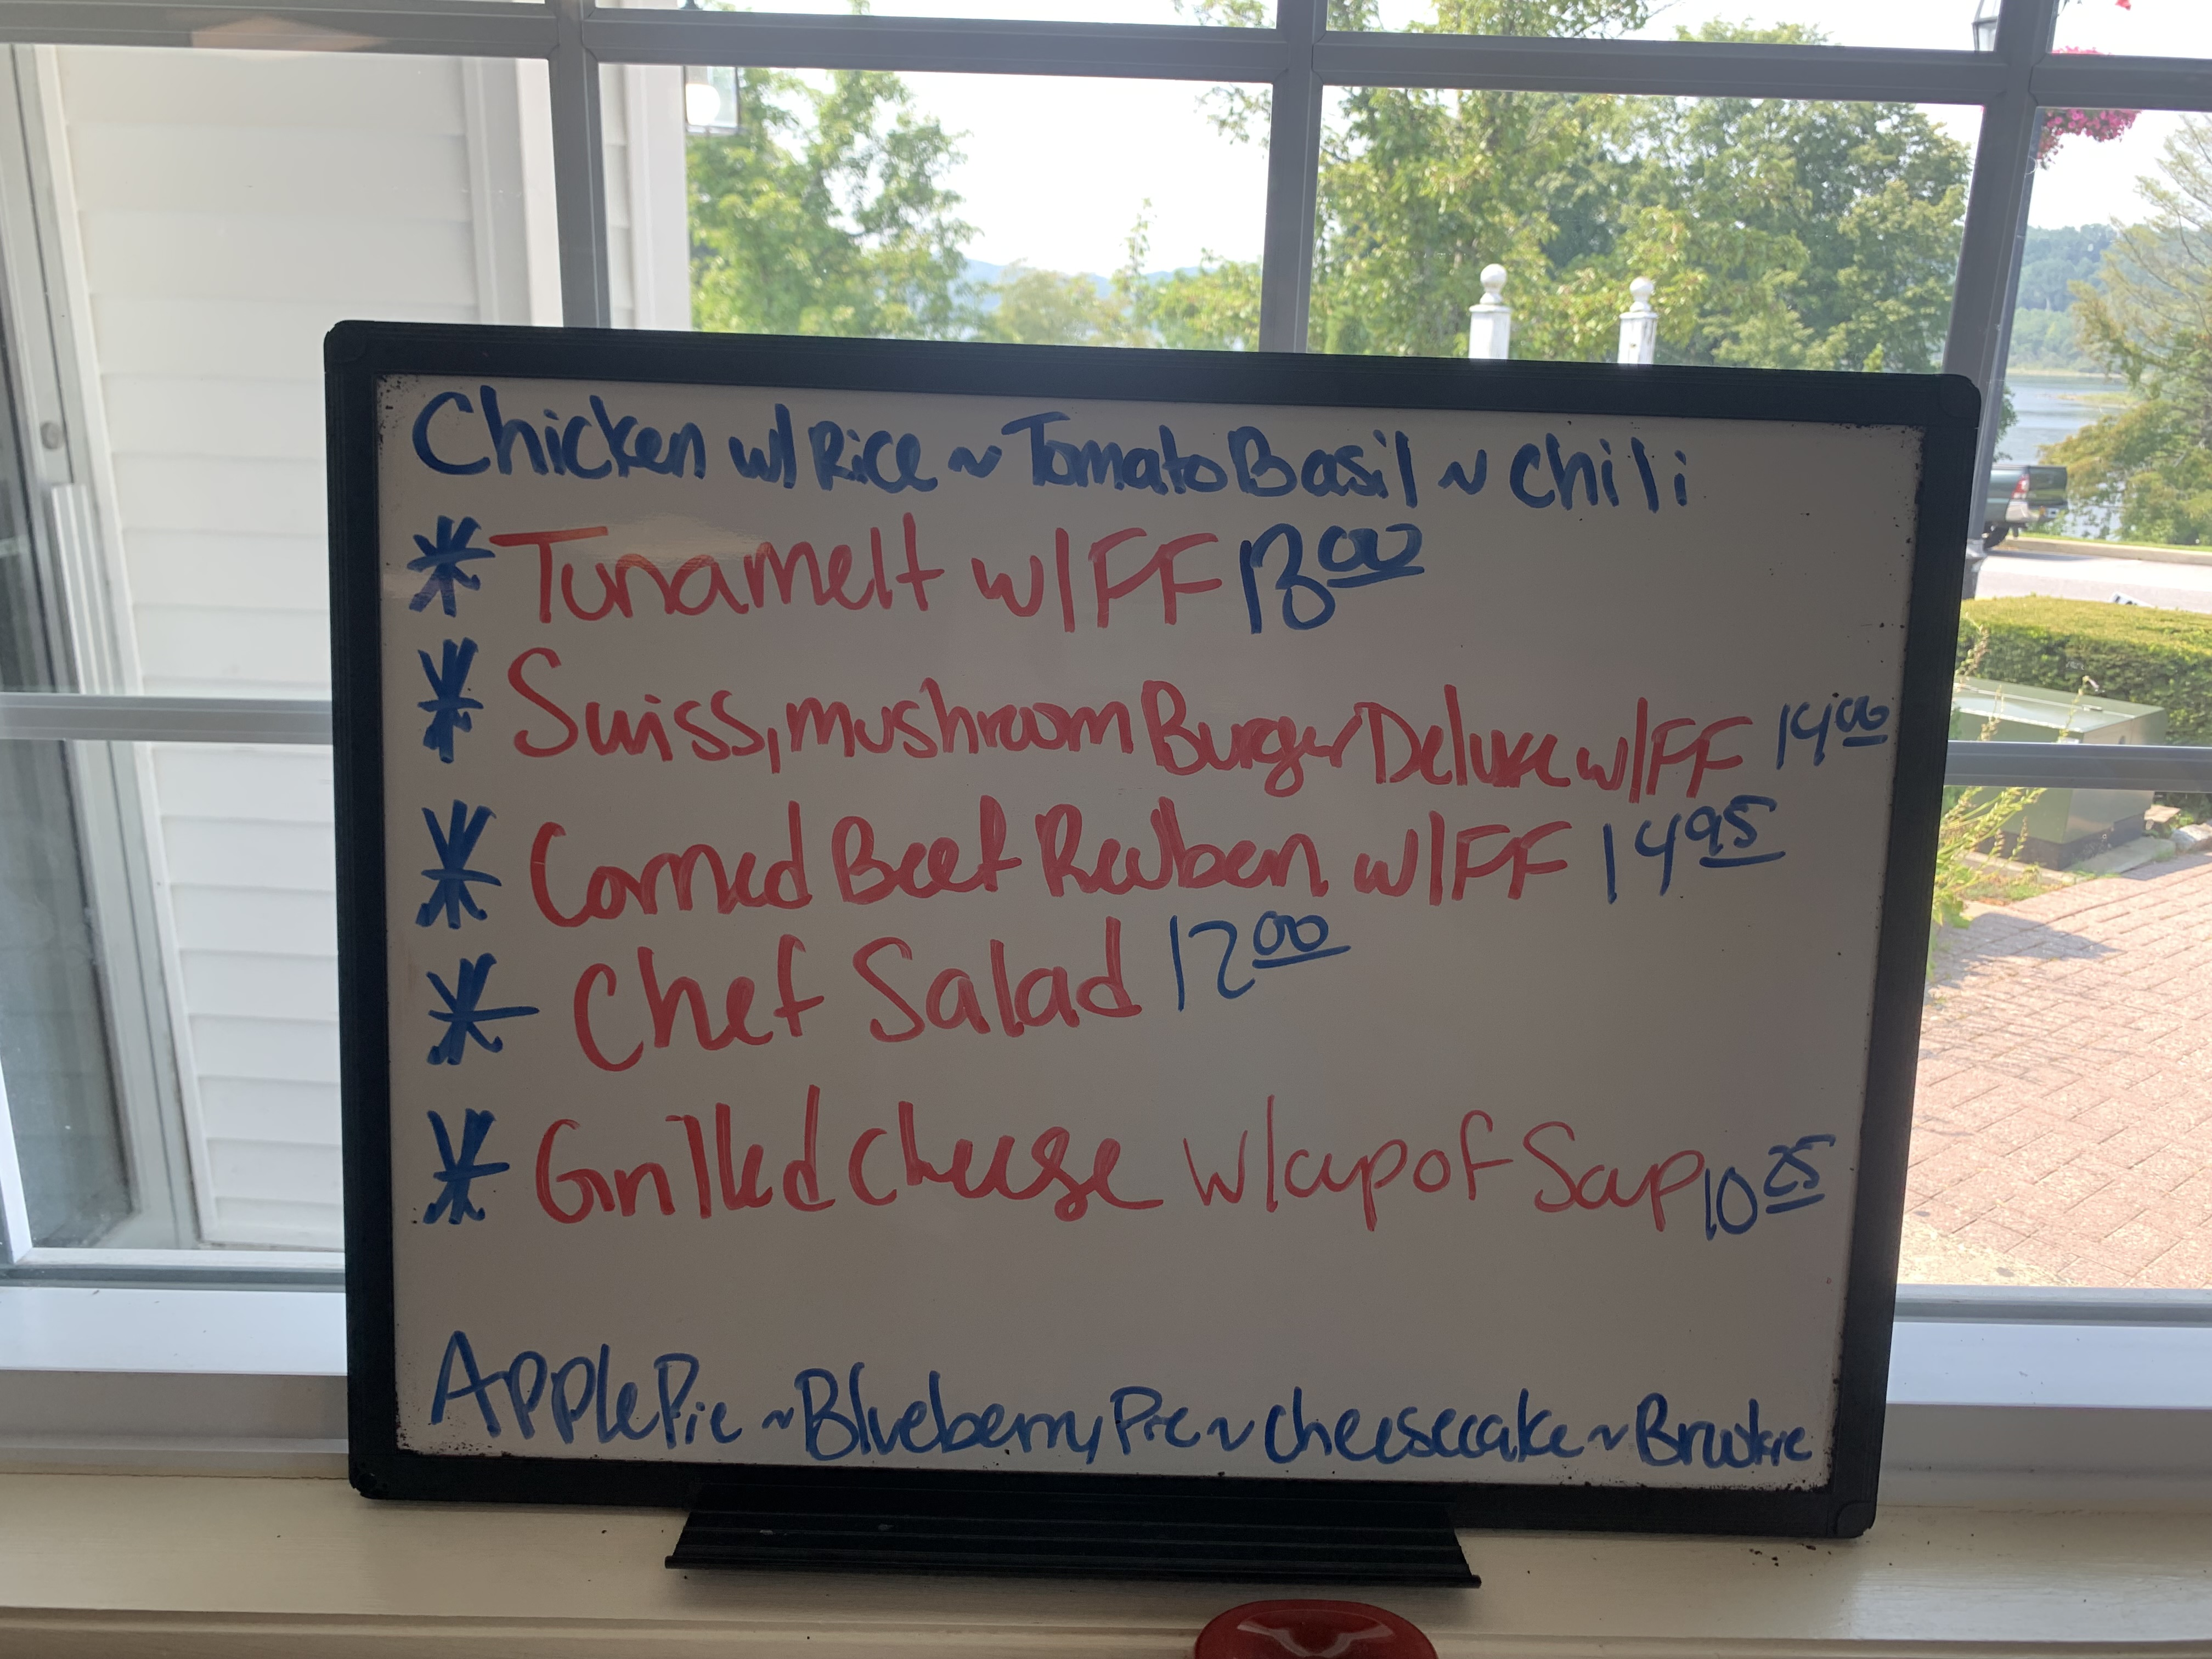 Chicken w/ Rice ~ Tomato Basil ~ Chili
* Tunamelt w/FF 13.00
* Swiss, mushroom Burger Deluxe w/FF 14.00
* Corned Beef Reuben w/FF 14.95
* Chef Salad 12.00
* Grilled cheese w/cup of Soup 10.25
Apple Pie ~ Blueberry Pie ~ cheesecake ~ Brookie